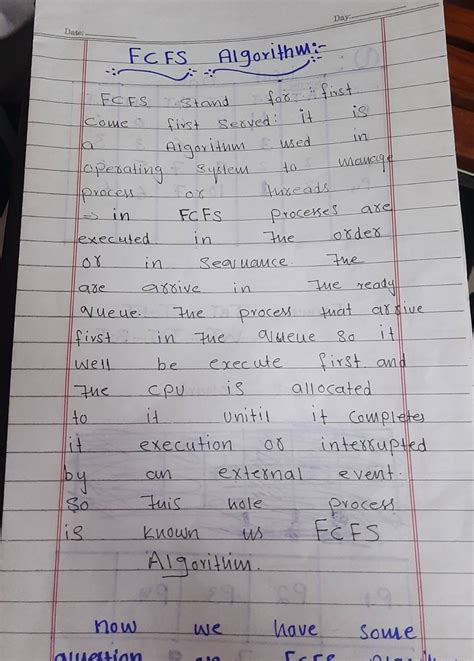 Date:
Day:
FCFS Algorithm:-
FCFS stand for : first
come first served: it is
a Algorithm used in
operating system to manage
process or threads
⇒ in FCFS processes are
executed in the order
or in sequance. The
are arrive in the ready
queue. The process that arrive
first in the queue so it
well be execute first and
the CPU is allocated
to it unitil it completes
it execution or interrupted
by an external event.
so this hole process
is known us FCFS
Algorithm.
now we have some
question FCFS